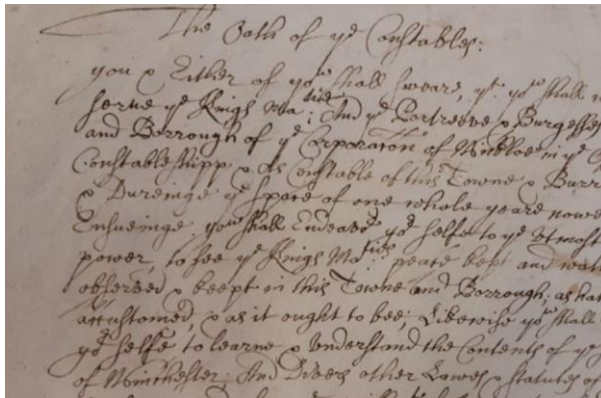 The Oath of ye Constables:
you & Either of you shall sweare, yt you shall
serve ye Kings Matie; And ye Portreeve & Burgesses
and Borrough of ye Corporation of in ye
Constableshipp & As Constable of this Towne & Burr
& Dureinge ye space of one whole yeare nowe
Ensueinge, you shall Endeavr yor selfe to ye utmost
power, to see ye Kings Maties peace kept and wat
observed & keept in this Towne and Borrough; as hat
accustomed, & as it ought to bee; Likewise you shall
yor selfe to learne & Understand the Contents of ye
of Winchester; And Divers other Lawes & Statutes of